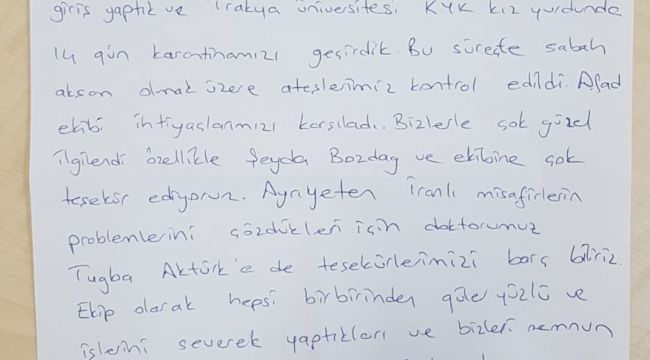 giriş yaptık ve Trakya üniversitesi KYK kız yurdunda
14 gün karantinamızı geçirdik. Bu süreçte sabah
akşam olmak üzere ateşlerimiz kontrol edildi. Afad
ekibi ihtiyaçlarımızı karşıladı. Bizlerle çok güzel
ilgilendi özellikle Feyda Bozdag ve ekibine çok
teşekür ediyorum. Ayrıyeten İranlı misafirlerin
problemlerini çözdükleri için doktorumuz
Tugba Aktürk'e de teşekürlerimizi borç biliriz.
Ekip olarak hepsi birbirinden güler yüzlü ve
işlerini severek yaptıkları ve bizleri memnun